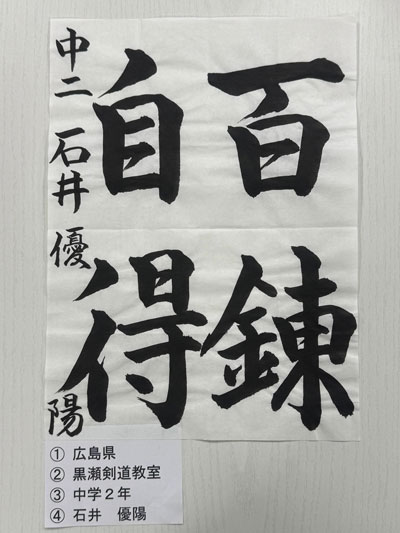 百錬
自得
中二 石井 優陽
① 広島県
② 黒瀬剣道教室
③ 中学２年
④ 石井　優陽